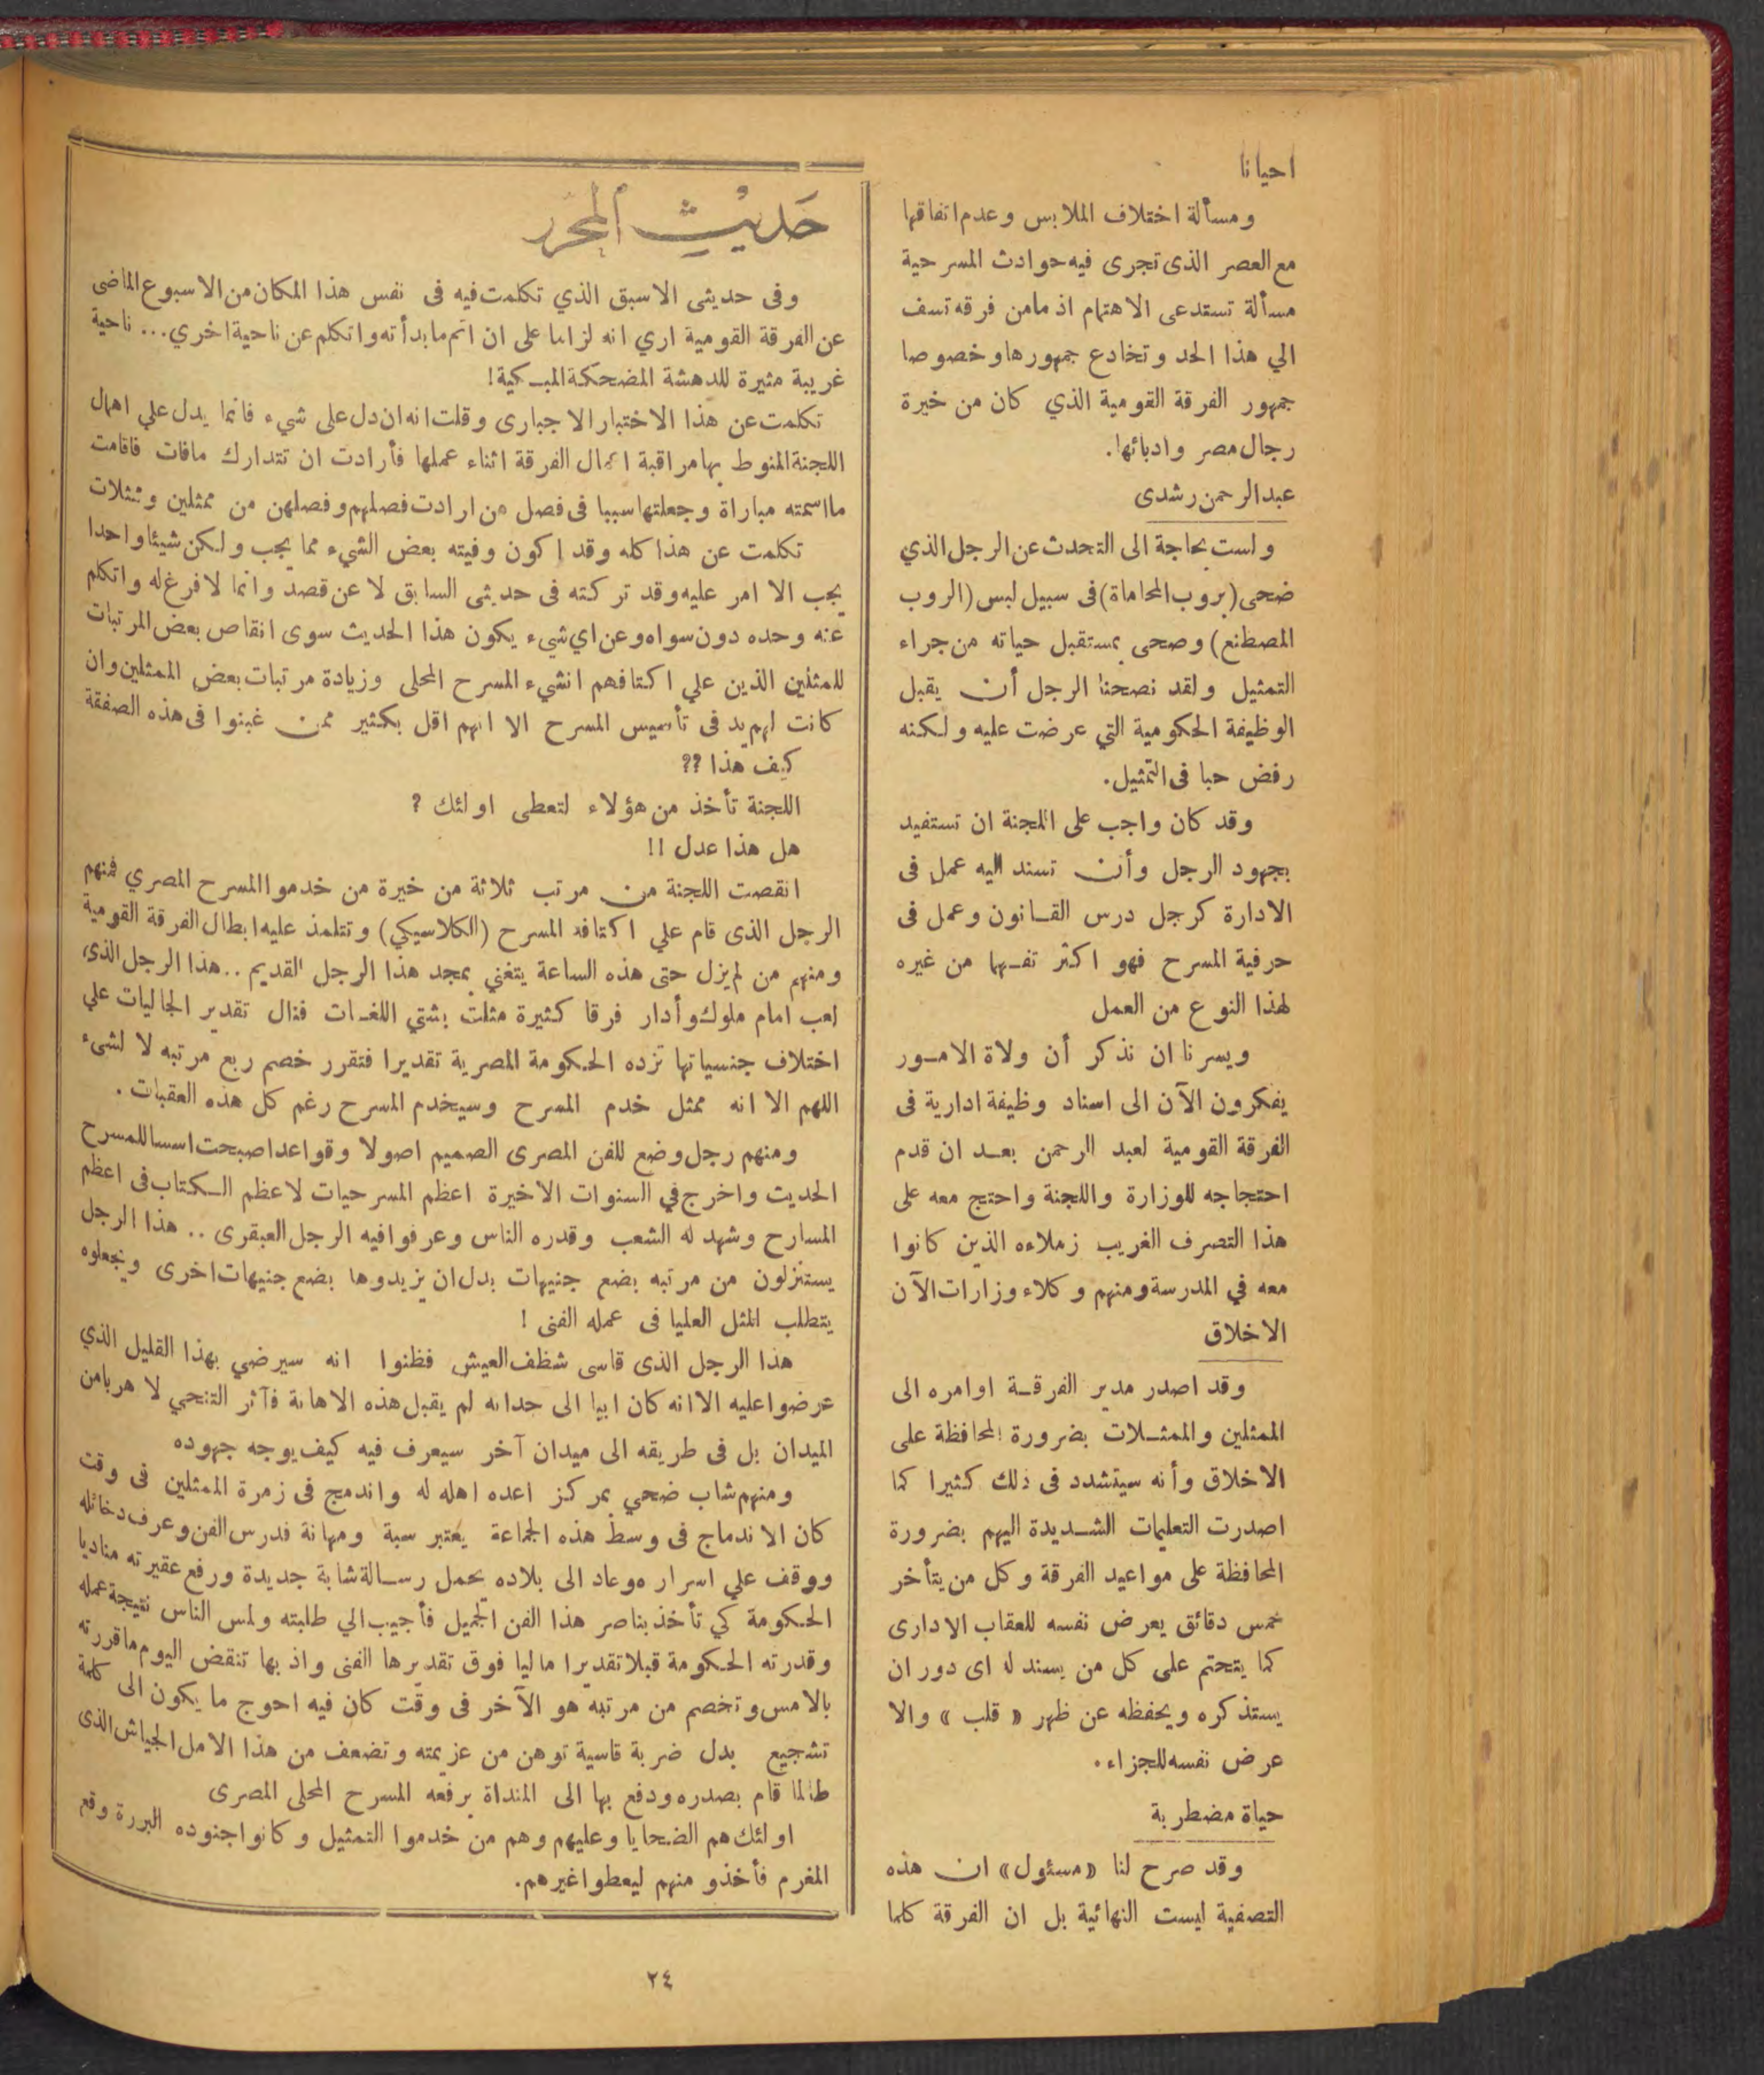 احيانا
ومسألة اختلاف الملابس وعدم اتفاقها
مع العصر الذى تجرى فيه حوادث المسرحية
مسألة تستدعى الاهتمام اذ مامن فرقه تسف
الي هذا الحد وتخادع جمهورها وخصوصا
جمهور الفرقة القومية الذي كان من خيرة
رجال مصر وادبائها.
عبد الرحمن رشدى
ولست بحاجة الى التحدث عن الرجل الذي
ضحى (بروب المحاماة) فى سبيل لبس (الروب
المصطنع) وضحى بمستقبل حياته من جراء
التمثيل ولقد نصحنا الرجل أن يقبل
الوظيفة الحكومية التي عرضت عليه ولكنه
رفض حبا فى التمثيل.
وقد كان واجب على اللجنة ان تستفيد
بجهود الرجل وأن تسند اليه عمل فى
الادارة كرجل درس القانون وعمل فى
حرفية المسرح فهو اكثر تفهما من غيره
لهذا النوع من العمل
ويسرنا ان نذكر أن ولاة الامور
يفكرون الآن الى اسناد وظيفة ادارية فى
الفرقة القومية لعبد الرحمن بعد ان قدم
احتجاجه للوزارة واللجنة واحتج معه على
هذا التصرف الغريب زملاءه الذين كانوا
معه في المدرسة ومنهم وكلاء وزارات الآن
الاخلاق
وقد اصدر مدير الفرقة اوامره الى
الممثلين والممثلات بضرورة المحافظة على
الاخلاق وأنه سيتشدد فى ذلك كثيرا كما
اصدرت التعليمات الشديدة اليهم بضرورة
المحافظة على مواعيد الفرقة وكل من يتأخر
خمس دقائق يعرض نفسه للعقاب الادارى
كما يتحتم على كل من يسند له اى دور ان
يستذكره ويحفظه عن ظهر « قلب » والا
عرض نفسه للجزاء.
حياة مضطربة
وقد صرح لنا «مسئول» ان هذه
التصفية ليست النهائية بل ان الفرقة كلما
حديث المحرر
وفى حديثى الاسبق الذي تكلمت فيه فى نفس هذا المكان من الاسبوع الماضى
عن الفرقة القومية اري انه لزاما على ان اتم مابدأته واتكلم عن ناحية اخري... ناحية
غريبة مثيرة للدهشة المضحكة المبكية!
تكلمت عن هذا الاختبار الاجبارى وقلت انه ان دل على شيء فانما يدل علي اهمال
اللجنة المنوط بها مراقبة اعمال الفرقة اثناء عملها فأرادت ان تتدارك مافات فاقامت
مااسمته مباراة وجعلتها سببا فى فصل من ارادت فصلهم وفصلهن من ممثلين وممثلات
تكلمت عن هذا كله وقد اكون وفيته بعض الشيء مما يجب ولكن شيئا واحدا
يجب الا امر عليه وقد تركته فى حديثى السابق لا عن قصد وانما لافرغ له واتكلم
عنه وحده دون سواه وعن اي شيء يكون هذا الحديث سوى انقاص بعض المرتبات
للمثلين الذين علي اكتافهم انشيء المسرح المحلى وزيادة مرتبات بعض الممثلين وان
كانت لهم يد فى تأسيس المسرح الا انهم اقل بكثير ممن غبنوا فى هذه الصفقة
كيف هذا ??
اللجنة تأخذ من هؤلاء لتعطى اولئك ?
هل هذا عدل !!
انقصت اللجنة من مرتب ثلاثة من خيرة من خدموا المسرح المصري فمنهم
الرجل الذى قام علي اكتافه المسرح (الكلاسيكي) وتتلمذ عليه ابطال الفرقة القومية
ومنهم من لم يزل حتى هذه الساعة يتغني بمجد هذا الرجل القديم .. هذا الرجل الذى
لعب امام ملوك وأدار فرقا كثيرة مثلت بشتي اللغات فنال تقدير الجاليات علي
اختلاف جنسياتها تزده الحكومة المصرية تقديرا فتقرر خصم ربع مرتبه لا لشىء
اللهم الا انه ممثل خدم المسرح وسيخدم المسرح رغم كل هذه العقبات .
ومنهم رجل وضع للفن المصرى الصميم اصولا وقواعدا صبحت اسسا للمسرح
الحديث واخرج في السنوات الاخيرة اعظم المسرحيات لاعظم الكتاب فى اعظم
المسارح وشهد له الشعب وقدره الناس وعرفوا فيه الرجل العبقرى .. هذا الرجل
يستنزلون من مرتبه بضع جنيهات بدل ان يزيدوها بضع جنيهات اخرى ويجعلوه
يتطلب المثل العليا فى عمله الفنى !
هذا الرجل الذى قاسى شظف العيش فظنوا انه سيرضي بهذا القليل الذي
عرضوا عليه الا انه كان ابيا الى حدانه لم يقبل هذه الاهانة فآثر التنحي لا هربا من
الميدان بل فى طريقه الى ميدان آخر سيعرف فيه كيف يوجه جهوده
ومنهم شاب ضحي بمركز اعده اهله له واندمج فى زمرة الممثلين فى وقت
كان الاندماج فى وسط هذه الجماعة يعتبر سبة ومهانة فدرس الفن وعرف دخائله
ووقف علي اسراره وعاد الى بلاده يحمل رسالة شابة جديدة ورفع عقيرته مناديا
الحكومة كي تأخذ بناصر هذا الفن الجميل فأجيب الي طلبته ولمس الناس نتيجة عمله
وقدرته الحكومة قبلا تقديرا ماليا فوق تقديرها الفنى واذ بها تنقض اليوم ماقررته
بالامس وتخصم من مرتبه هو الآخر فى وقت كان فيه احوج ما يكون الى كلمة
تشجيع بدل ضربة قاسية توهن من عزيمته وتضعف من هذا الامل الجياش الذى
طالما قام بصدره ودفع بها الى المنداة برفعه المسرح المحلى المصرى
اولئك هم الضحايا وعليهم وهم من خدموا التمثيل وكانوا جنوده البررة وقع
المغرم فأخذو منهم ليعطوا غيرهم.
٢٤